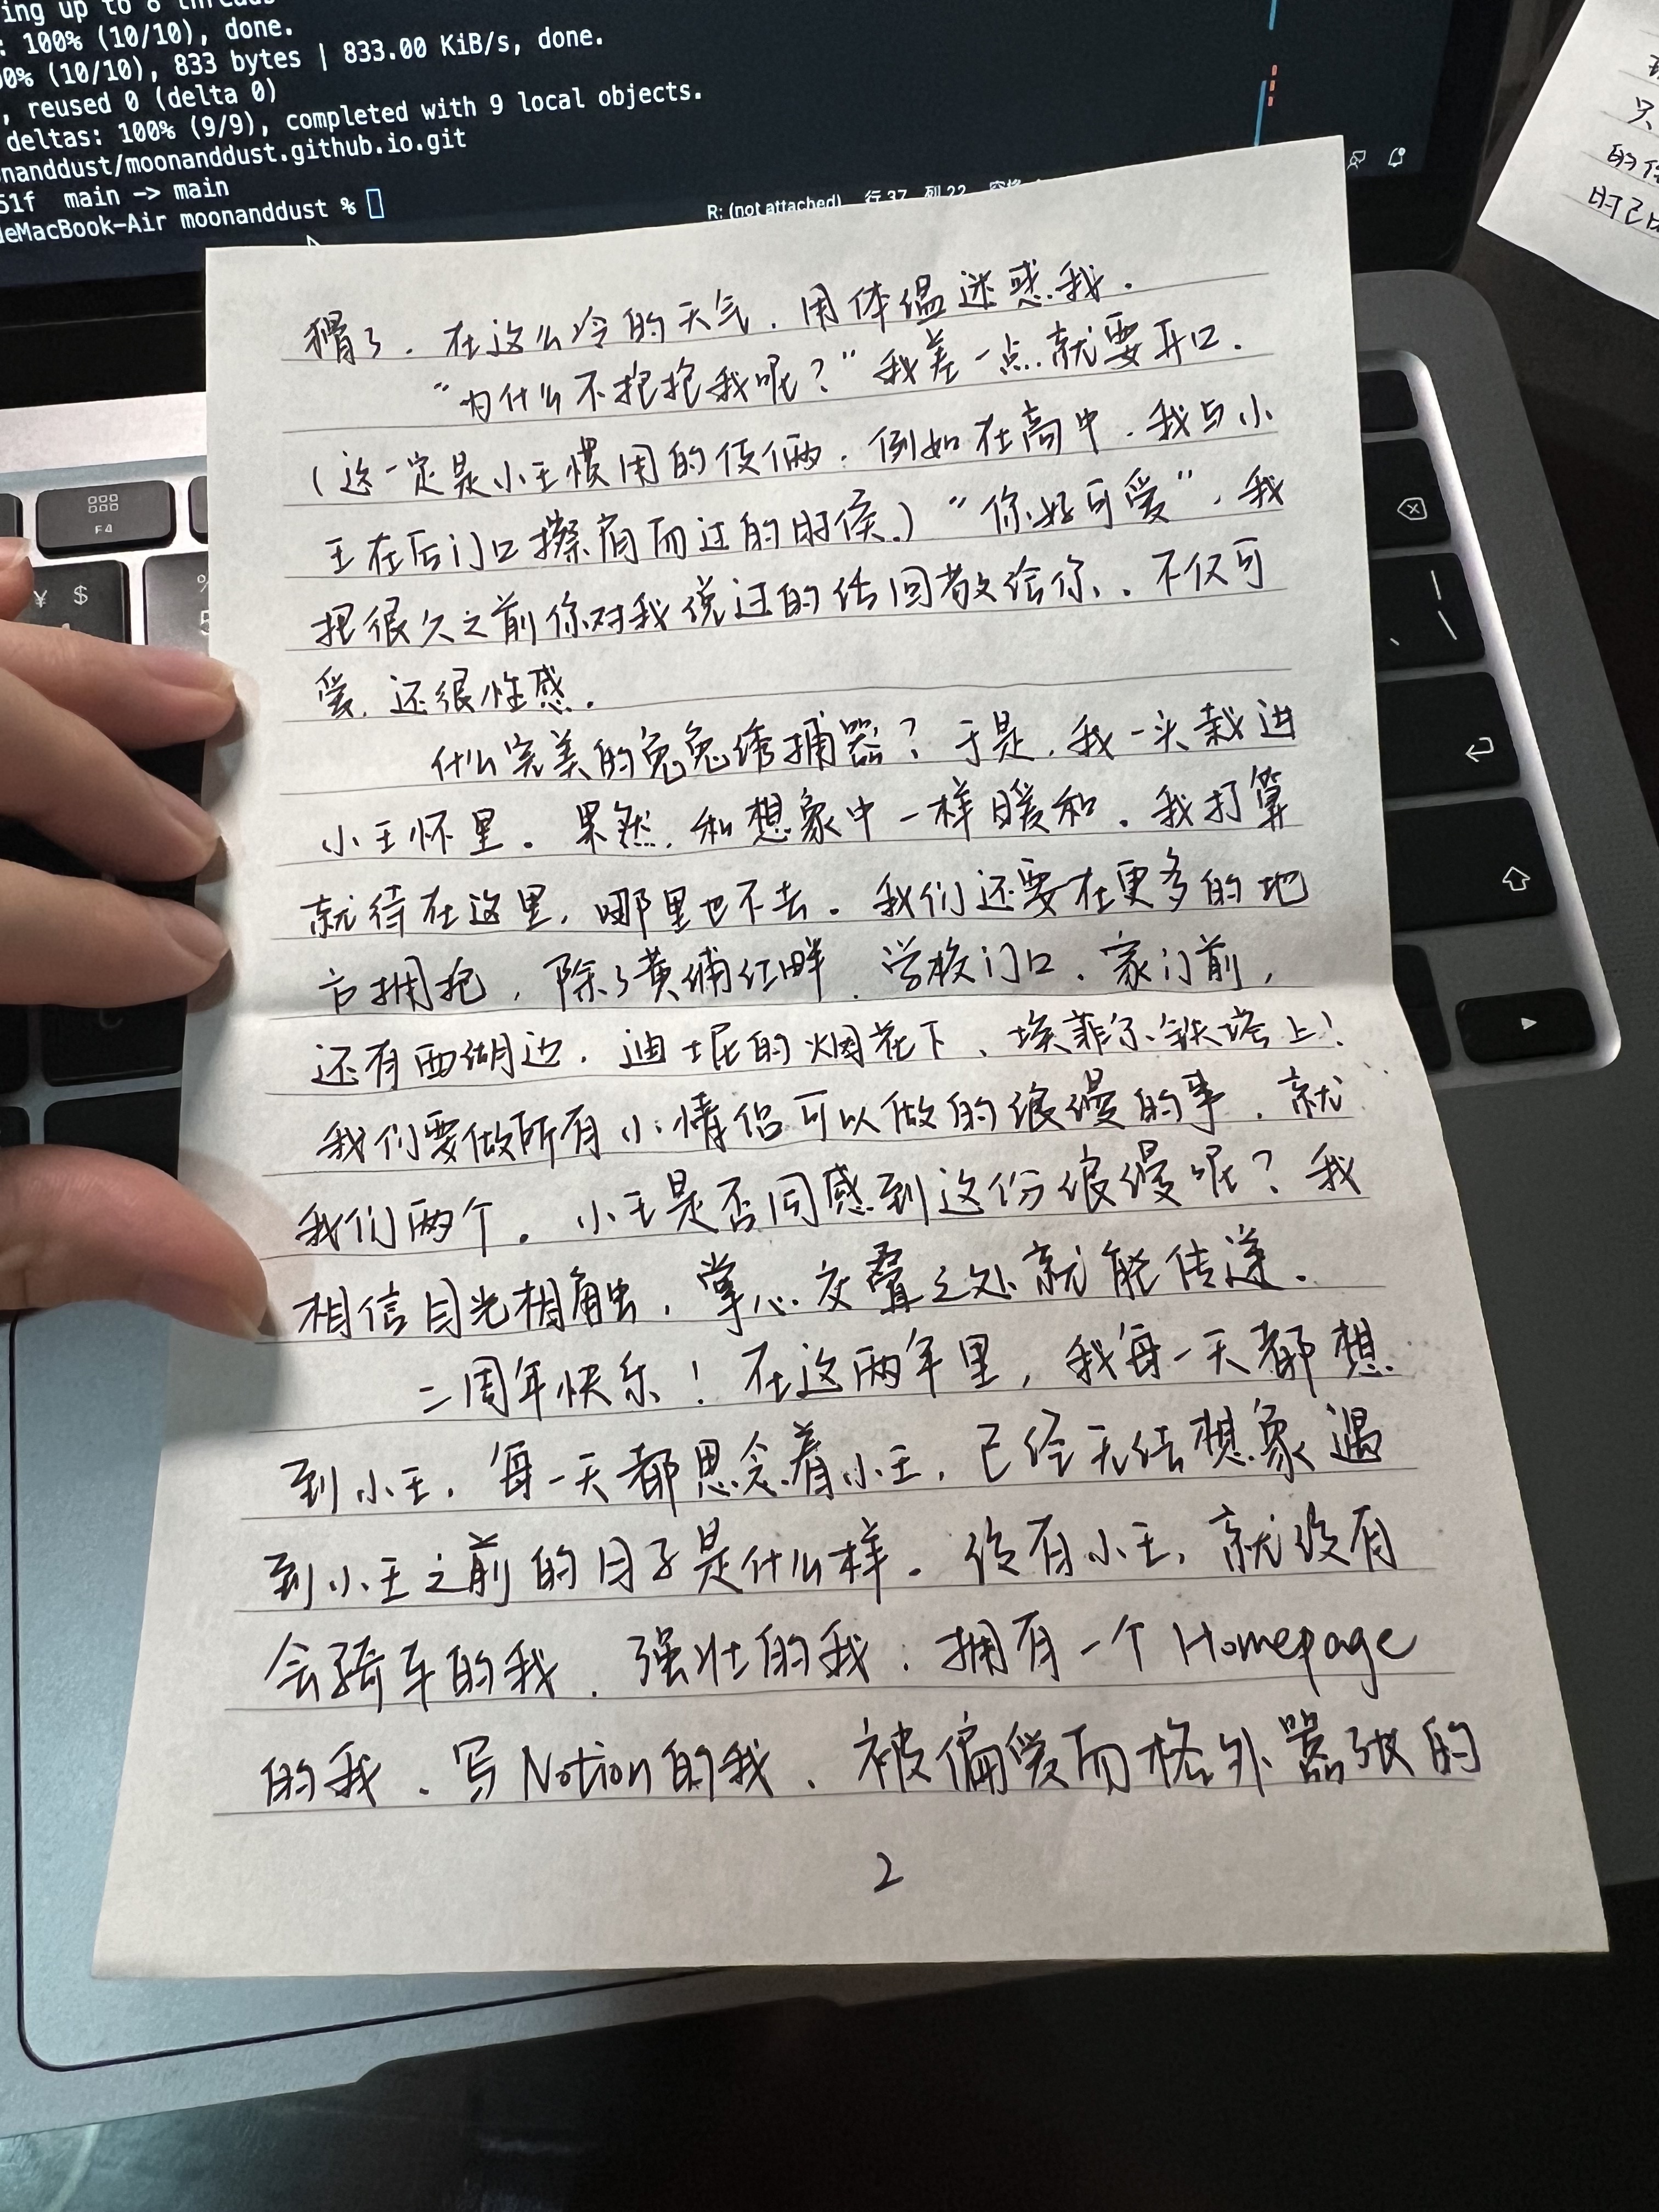 ing up to 8 threads
: 100% (10/10), done.
00% (10/10), 833 bytes | 833.00 KiB/s, done.
, reused 0 (delta 0)
deltas: 100% (9/9), completed with 9 local objects.
nanddust/moonanddust.github.io.git
51f main -> main
deMacBook-Air moonanddust %
R: (not attached) 行 37, 列 22
猾了。在这么冷的天气，用体温迷惑我。
“为什么不抱抱我呢？”我差一点就要开口。
（这一定是小王惯用的伎俩，例如在高中，我与小
王在后门口擦肩而过的时候。）“你好可爱”，我
把很久之前你对我说过的话回敬给你、。不仅可
爱，还很性感。
什么完美的兔兔诱捕器？于是，我一头栽进
小王怀里。果然，和想象中一样暖和。我打算
就待在这里，哪里也不去。我们还要在更多的地
方拥抱，除了黄浦江畔、学校门口、家门前，
还有西湖边、迪士尼的烟花下、埃菲尔铁塔上！
我们要做所有小情侣可以做的浪漫的事，就
我们两个。小王是否同感到这份浪漫呢？我
相信目光相触，掌心交叠之处就能传递。
二周年快乐！在这两年里，我每一天都想
到小王，每一天都思念着小王，已经无法想象遇
到小王之前的日子是什么样。没有小王，就没有
会骑车的我、强壮的我、拥有一个Homepage
的我、写Notion的我、被偏爱而格外嚣张的
2
只
的
F4
¥ $
%
5